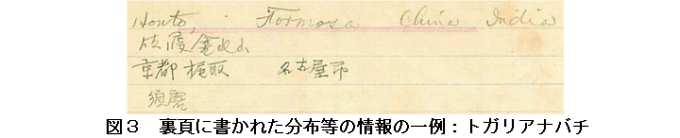 Honto, Formosa China India
京都 名古屋市
須磨
図3 裏頁に書かれた分布等の情報の一例：トガリアナバチ